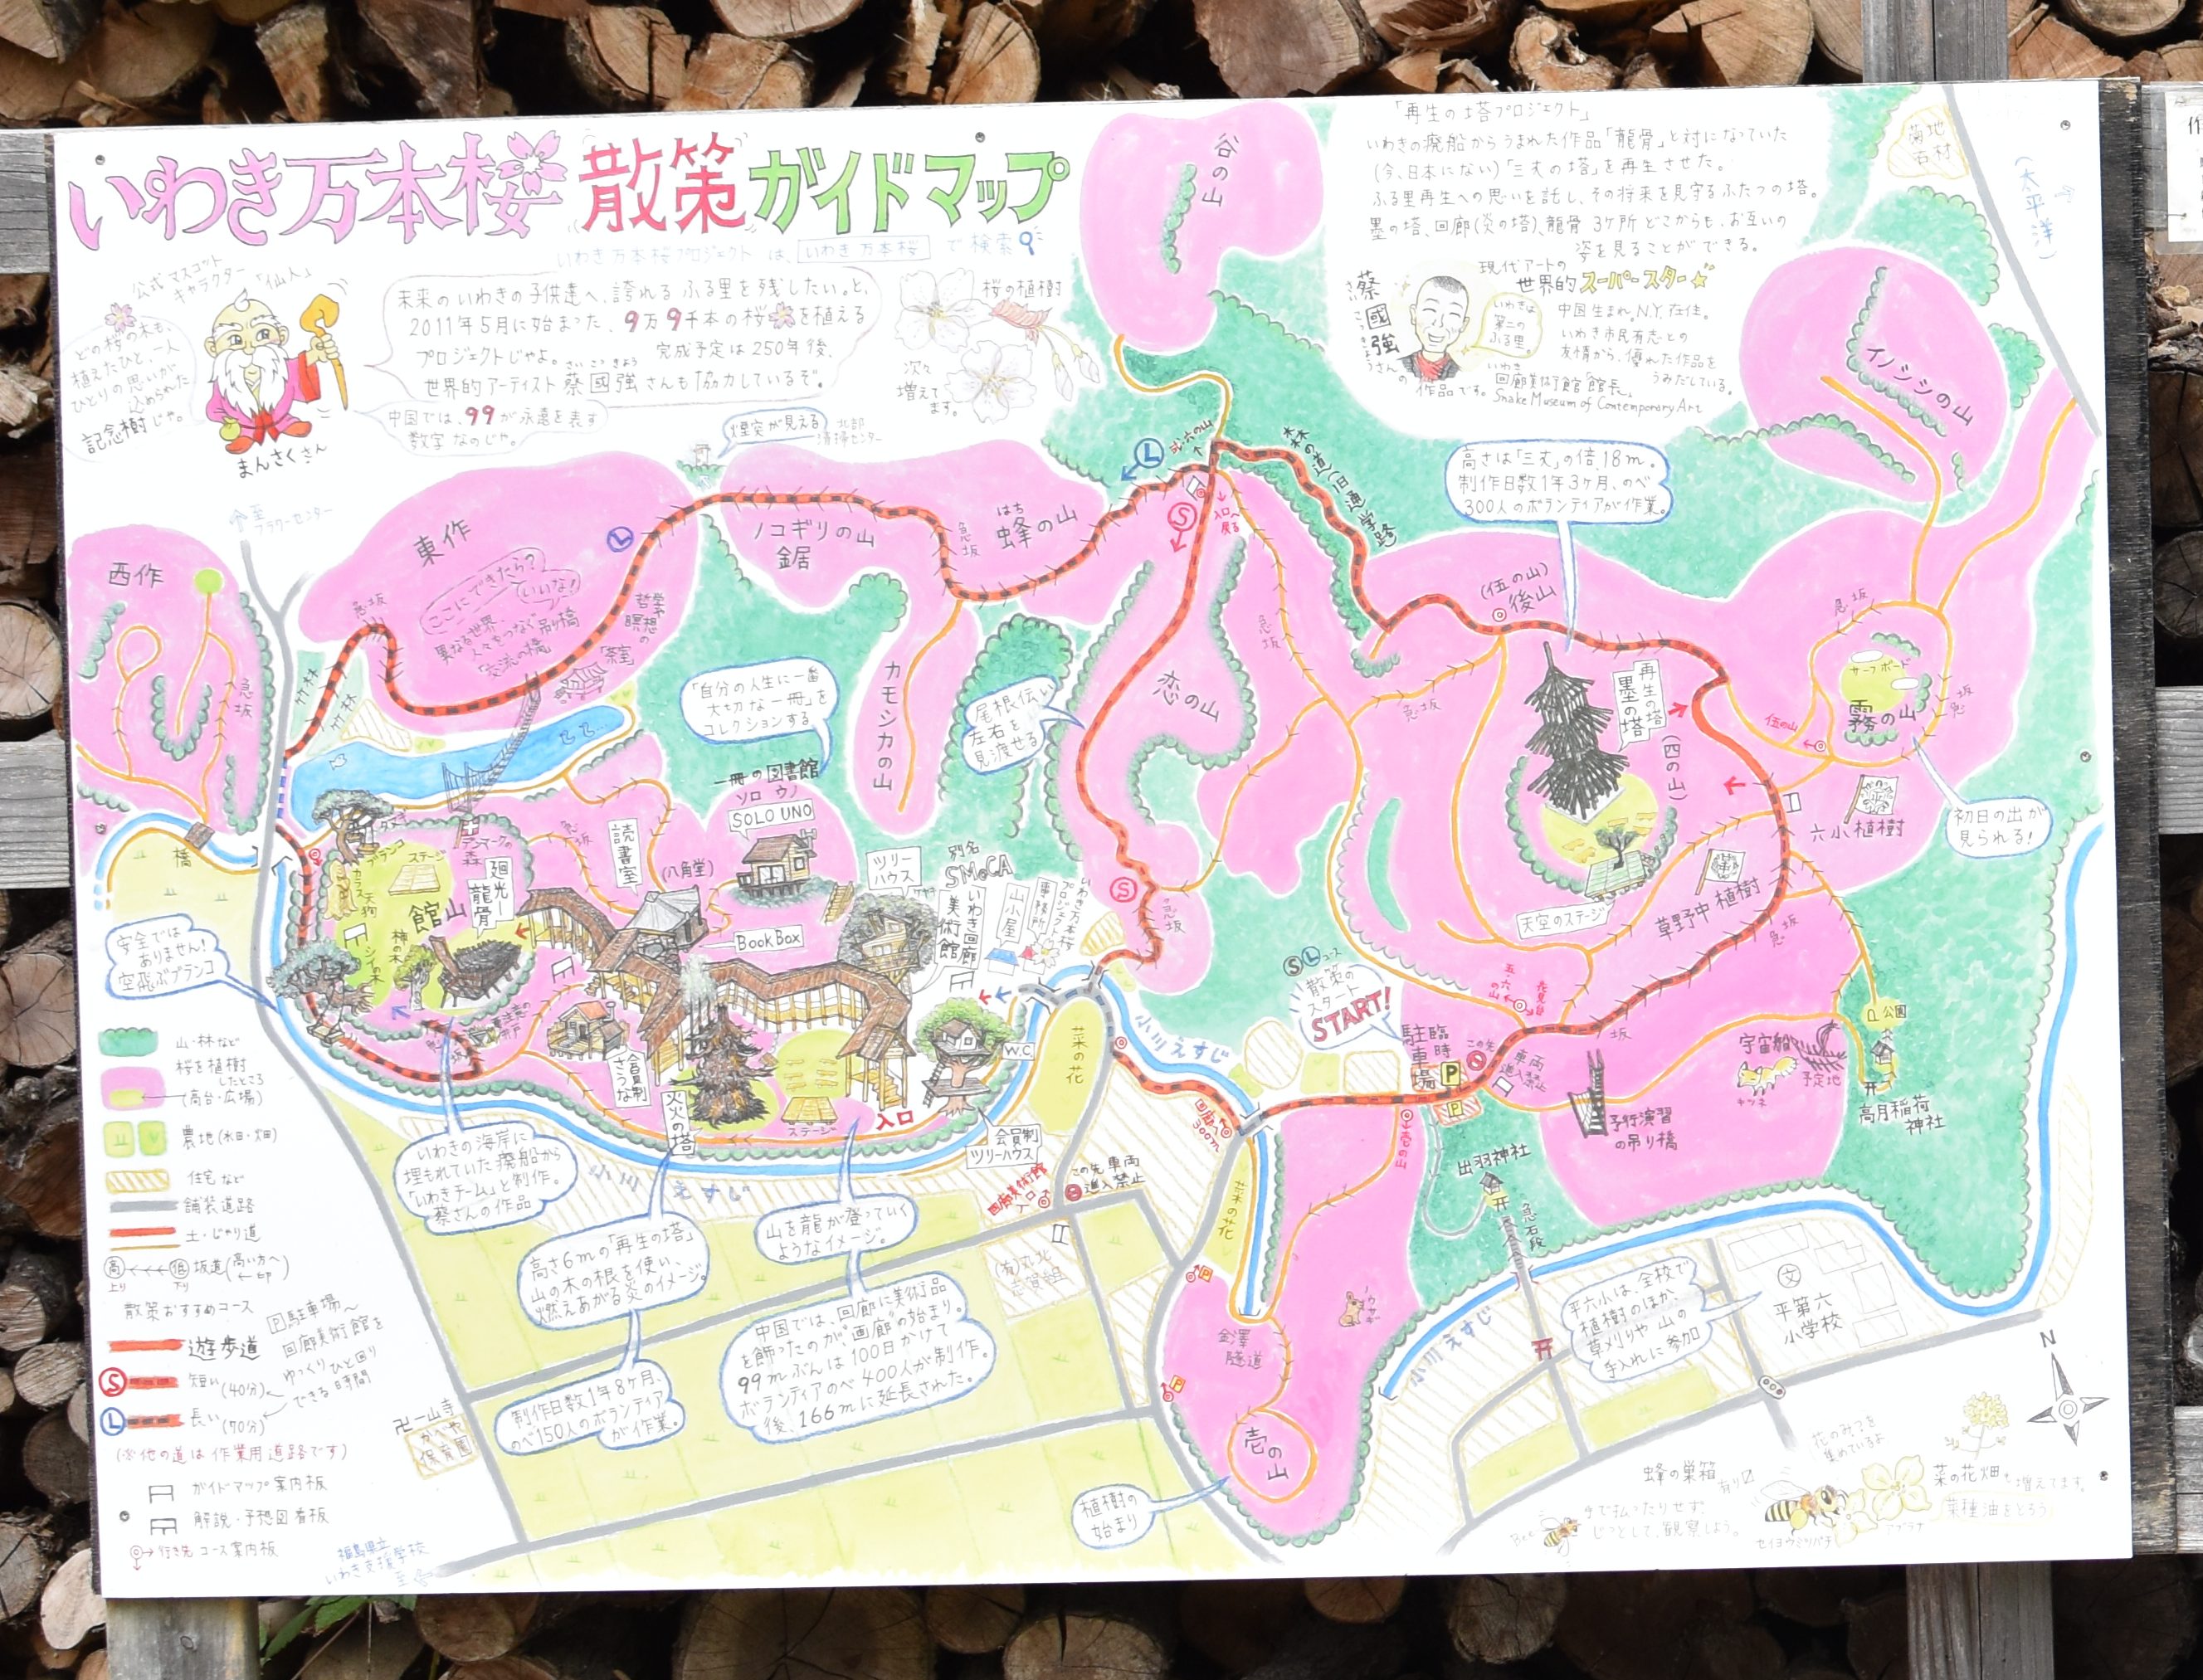 いわき万本桜 散策 ガイドマップ
いわき万本桜プロジェクト は、いわき 万本桜 で 検索
公式マスコット
キャラクター「仙人」
どの桜の木も、
植えたひと、一人
ひとりの思いが
込められた
記念樹じゃ。
まんさくさん
未来のいわきの子供達へ、誇れるふる里を残したい。と、
2011年5月に始まった、9万9千本の桜を植える
プロジェクトじゃよ。 完成予定は250年後、
さいこっきょう
世界的アーティスト 蔡國強さんも協力しているぞ。
中国では、99が永遠を表す
数字なのじゃ。
桜の植樹
次々
増えて
ます。
「再生の塔プロジェクト」
いわきの廃船からうまれた作品「龍骨」と対になっていた
(今、日本にない)「三丈の塔」を再生させた。
ふる里再生への思いを託し、その将来を見守るふたつの塔。
墨の塔、回廊(炎の塔)、龍骨 3ケ所 どこからも、お互いの
姿を見ることができる。
蔡國強さんの
現代アートの
世界的スーパースター
いわきは
第二の
ふる里。
中国生まれ、N.Y.在住。
いわき市民有志との
友情から、優れた作品を
うみだしている。
作品です。
いわき
回廊美術館 館長。
Snake Museum of Contemporary Art
菊地
石材
(太平洋)
谷の山
イノシシの山
煙突が見える
北部
清掃センター
至
フラワーセンター
西作
急坂
東作
急坂
ここにできたら?
いいな!
異なる世界、
人々をつなぐ吊り橋
「交流の橋」
哲学
瞑想の
「茶室」
竹林
竹林
L
ノコギリの山
鋸
急坂
はち
蜂の山
カモシカの山
L
S
入口へ
戻る
森の道(旧通学路)
恋の山
急坂
尾根伝い
左右を
見渡せる
高さは「三丈」の倍、18m。
制作日数1年3ヶ月、のべ
300人のボランティアが作業。
(伍の山)
後山
急坂
再生の塔
墨の塔
(四の山)
伍の山
急坂
サーフボード
霧の山
六小植樹
初日の出が
見られる!
草野中植樹
天空のステージ
急坂
「自分の人生に一番
大切な一冊」を
コレクションする
一冊の図書館
ソロ ウノ
SOLO UNO
読書室
(八角堂)
BookBox
ツリー
ハウス
別名
SMoCA
いわき回廊
美術館
山小屋
いわき万本桜
プロジェクト
事務所
橋
ブランコ
ステージ
カラス
天狗
館山
廻光ー
龍骨
シイの木
神の木
急坂
安全では
ありません!
空飛ぶブランコ
会員制
さうな
炎の塔
ステージ
入口
W.C.
会員制
ツリーハウス
菜の花
小川えすじ
S
S L コース
散策の
スタート
START!
臨時
駐車場
P
P
この先
車両
進入禁止
五・六
の山
坂
急坂
予行演習
の吊り橋
宇宙船
予定地
キツネ
公園
高月稲荷
神社
出羽神社
急石段
回廊
300m
壱の山
菜の花
ノウサギ
金澤
隧道
壱の山
植樹の
始まり
回廊美術館
この先 車両
進入禁止
(有)丸北
志賀
小川えすじ
小川えすじ
いわきの海岸に
埋もれていた廃船から
「いわきチーム」と制作。
蔡さんの作品
高さ6mの「再生の塔」
山の木の根を使い、
燃えあがる炎のイメージ。
制作日数1年8ヶ月、
のべ150人のボランティア
が作業。
山を龍が登っていく
ようなイメージ。
中国では、回廊に美術品
を飾ったのが"画廊"の始まり。
99mぶんは100日かけて
ボランティアのべ400人が制作。
後、166mに延長された。
平六小は、全校で
植樹のほか、
草刈りや山の
手入れに参加
文
平第六
小学校
N
山・林など
桜を植樹
したところ
(高台・広場)
農地(水田・畑)
住宅など
舗装道路
土・じゃり道
高 低 坂道(高い方へ←印)
上り 下り
散策おすすめコース
遊歩道
S 短い(40分)
L 長い(70分)
P駐車場〜
回廊美術館を
ゆっくりひと回り
できる時間
(※他の道は作業用道路です)
ガイドマップ案内板
解説・予想図看板
行き先 コース案内板
卍一山寺
かべや
保育園
福島県立
いわき支援学校
至
花のみつを
集めているよ
蜂の巣箱
有り
手で払ったりせず!
じっとして、観察しよう。
Bee
セイヨウミツバチ
アブラナ
菜の花畑も増えてます。
菜種油をとろう